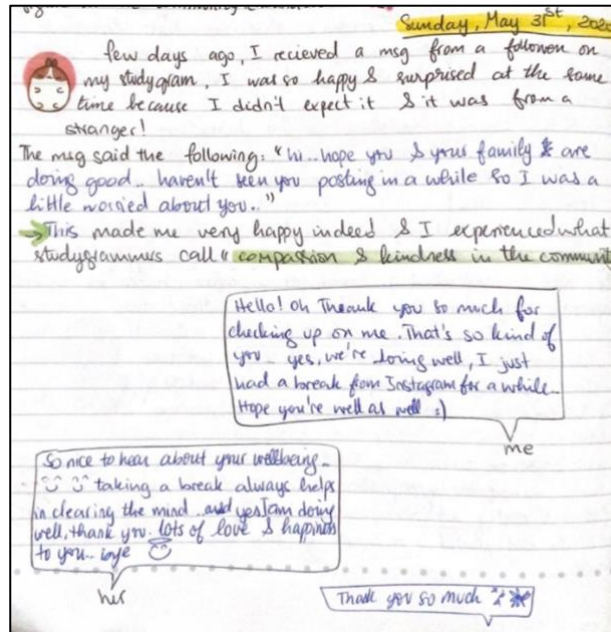 Sunday, May 31st, 2020
few days ago, I recieved a msg from a follower on
my studygram, I was so happy & surprised at the same
time because I didn't expect it & it was from a
stranger!
The msg said the following: "hi.. hope you & your family are
doing good.. haven't seen you posting in a while so I was a
little worried about you.."
→ This made me very happy indeed & I experienced what
studygrammers call "compassion & kindness in the communit
Hello! Oh Theank you so much for
checking up on me. That's so kind of
you.. yes, we're doing well, I just
had a break from Instagram for a while..
Hope you're well as well :)
me
So nice to hear about your wellbeing..
taking a break always helps
in clearing the mind.. and yes I am doing
well, thank you. lots of love & happiness
to you..
her
Thank you so much